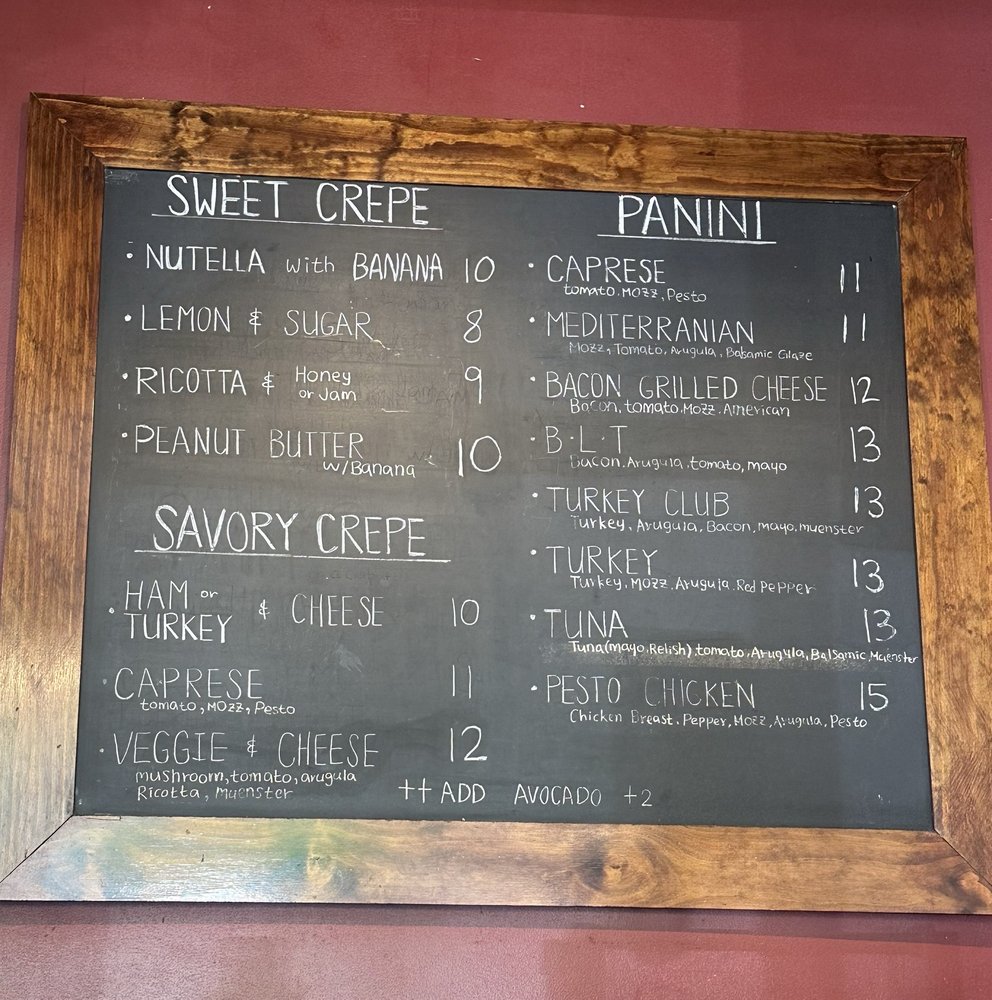 SWEET CREPE
· NUTELLA with BANANA 10
· LEMON & SUGAR 8
· RICOTTA & Honey or Jam 9
· PEANUT BUTTER 10
w/Banana
SAVORY CREPE
· HAM or TURKEY & CHEESE 10
CAPRESE 11
tomato, MOZZ, Pesto
· VEGGIE & CHEESE 12
mushroom, tomato, arugula
Ricotta, Muenster
PANINI
· CAPRESE 11
tomato. MOZZ, Pesto
· MEDITERRANIAN 11
MOZZ, Tomato, Arugula, Balsamic Glaze
· BACON GRILLED CHEESE 12
Bacon, tomato. MOZZ. American
· B·L·T 13
Bacon. Arugula, tomato, mayo
· TURKEY CLUB 13
Turkey, Arugula, Bacon, mayo, muenster
· TURKEY 13
Turkey, MOZZ, Arugula, Red Pepper
· TUNA 13
Tuna (mayo, Relish) tomato, Arugula, Balsamic, Muenster
· PESTO CHICKEN 15
Chicken Breast, Pepper, MOZZ, Arugula, Pesto
++ ADD AVOCADO +2